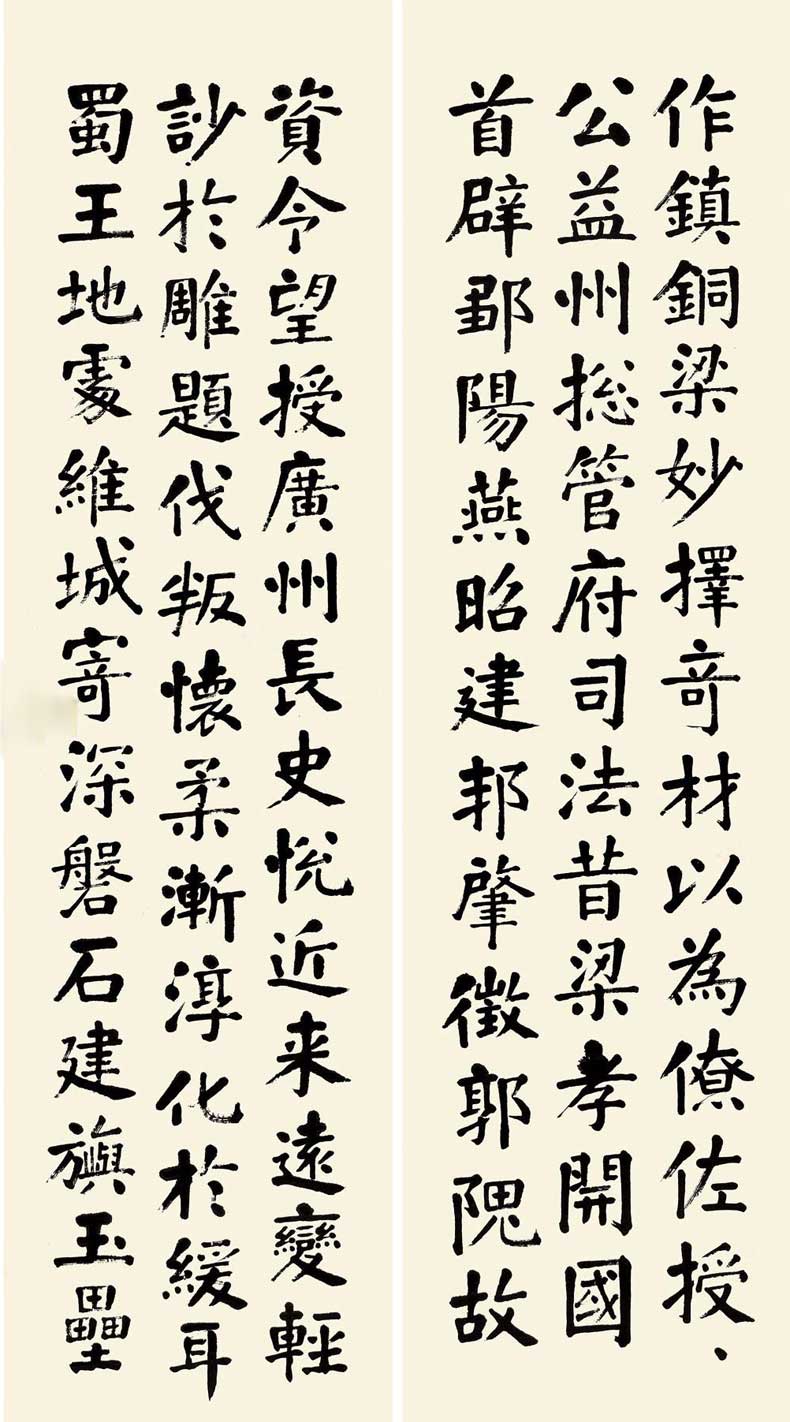 作鎮銅梁妙擇竒材以為僚佐授、
公益州捴管府司法昔梁孝開國
首辟鄒陽燕昭建邦肇徵郭隗故
資令望授廣州長史悅近来遠變輕
訬於雕題伐叛懷柔漸淳化於緩耳
蜀王地處維城寄深磐石建旟玉壘